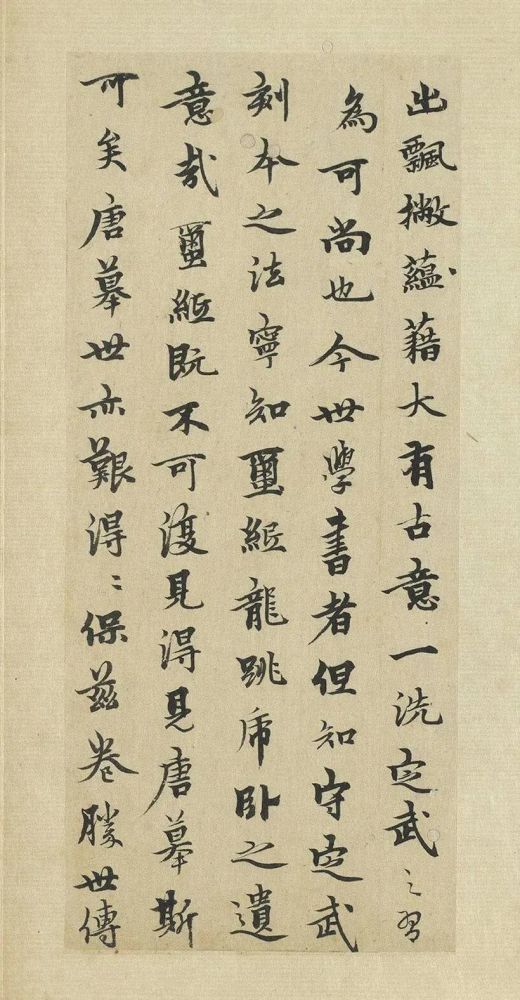 出飄撇蘊藉大有古意一洗定武之習
為可尚也今世學書者但知守定武
刻本之法寧知蠒紙龍跳虎卧之遺
意哉蠒紙既不可復見得見唐摹斯
可矣唐摹世亦艱得〻保茲卷勝世傳